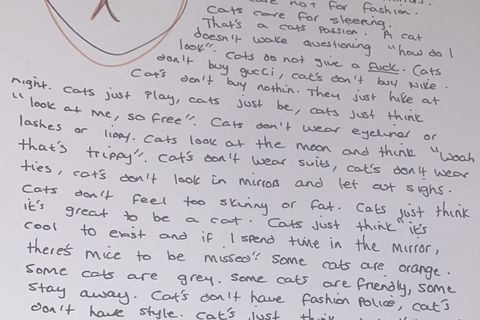 are not for fashion.
Cats care for sleeping.
That's a cats passion. A cat
doesn't wake questioning "how do I
look". Cats do not give a fuck. Cats
don't buy gucci, cat's don't buy Nike.
Cat's don't buy nothin. They just hike at
night. Cats just Play, cats just be, cats just think
"look at me, so free". Cats don't wear eyeliner or
lashes or lippy. Cats look at the moon and think "woah
that's trippy". Cat's don't wear suits, cat's don't wear
ties, cat's don't look in mirrors and let out sighs.
Cats don't feel too skinny or fat. Cats just think
it's great to be a cat. Cats just think "it's
cool to exist and if I spend time in the mirror,
there's mice to be missed". Some cats are orange.
Some cats are grey. Some cats are friendly, some
stay away. Cat's don't have fashion Police, cat's
don't have style. Cat's just think